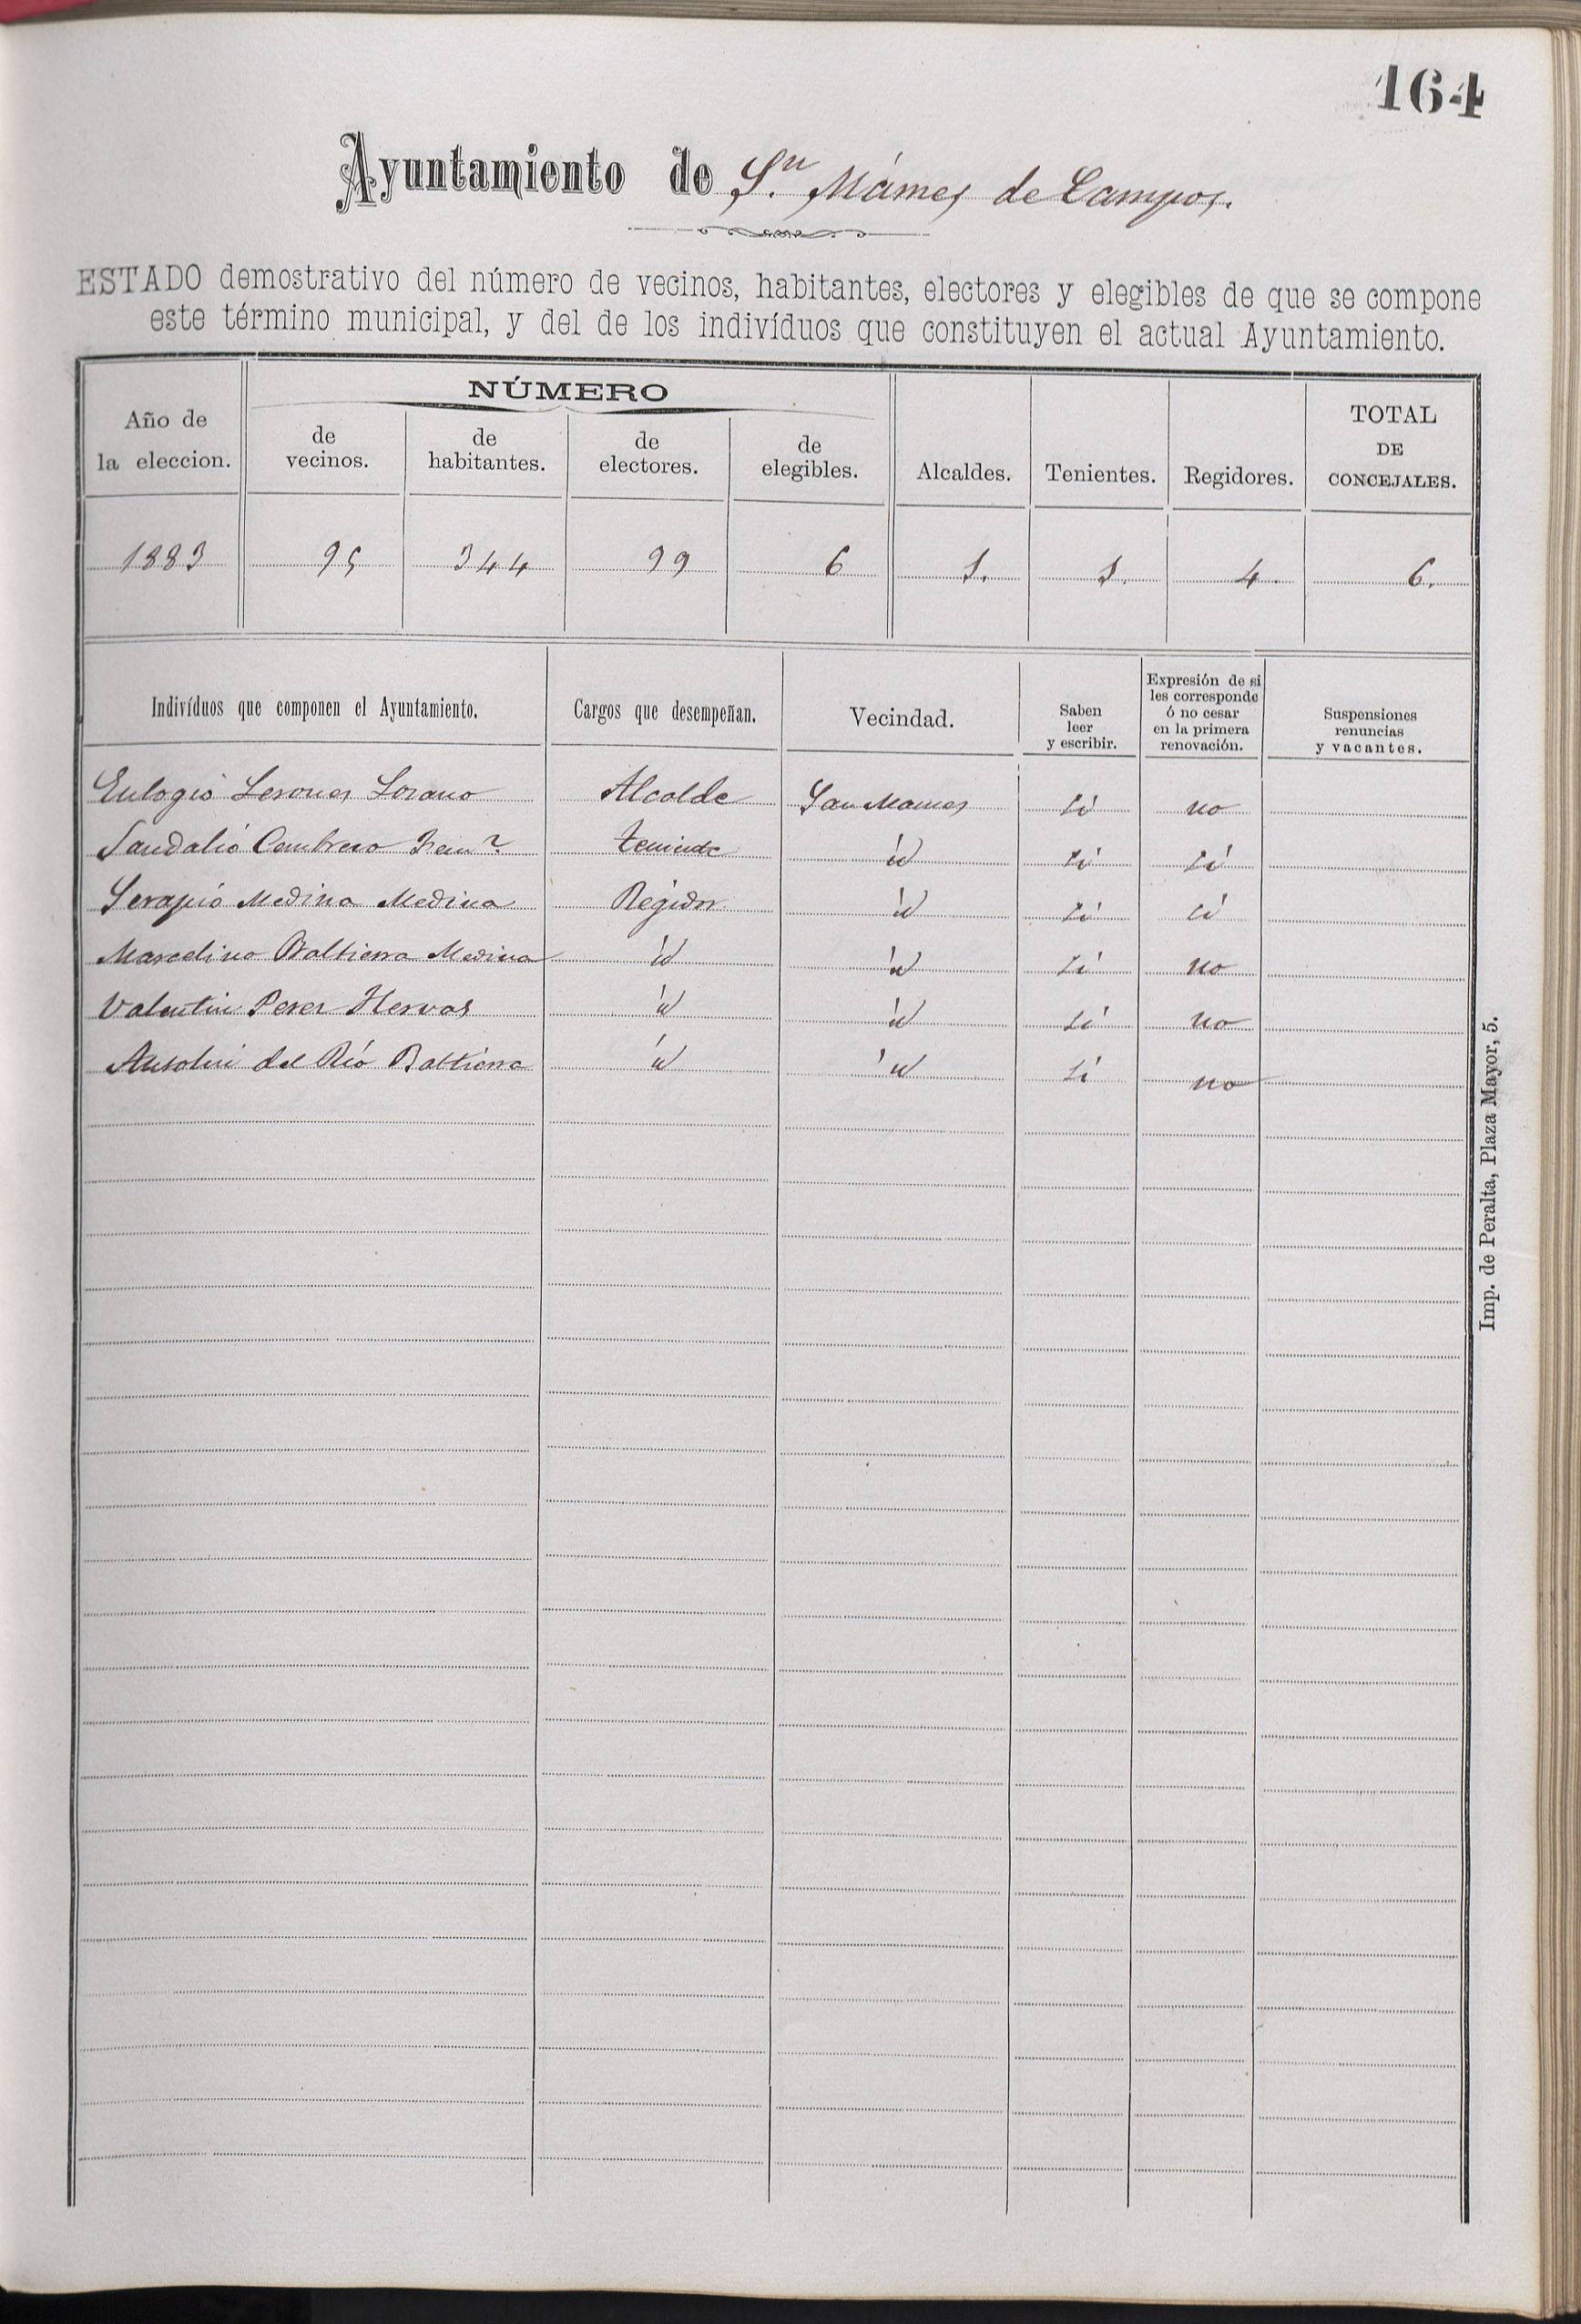 164
Ayuntamiento de Sn. Mámes de Campos.
ESTADO demostrativo del número de vecinos, habitantes, electores y elegibles de que se compone
este término municipal, y del de los indivíduos que constituyen el actual Ayuntamiento.
Año de la eleccion. NÚMERO de vecinos. de habitantes. de electores. de elegibles. Alcaldes. Tenientes. Regidores. TOTAL DE CONCEJALES.
1883 95 344 99 6 1. 1. 4. 6.
Indivíduos que componen el Ayuntamiento. Cargos que desempeñan. Vecindad. Saben leer y escribir. Expresión de si les corresponde ó no cesar en la primera renovación. Suspensiones renuncias y vacantes.
Eulogio Lesones Lozano Alcalde San Mames Sí no
Sandalio Cembrero teniente id Sí Sí
Serapio Medina Medina Regidor id Sí Sí
Marcelino Baltierra Medina id id Sí no
Valentin Perez Hervas id id Sí no
Ansolin del Río Baltierra id id Sí no
Imp. de Peralta, Plaza Mayor, 5.